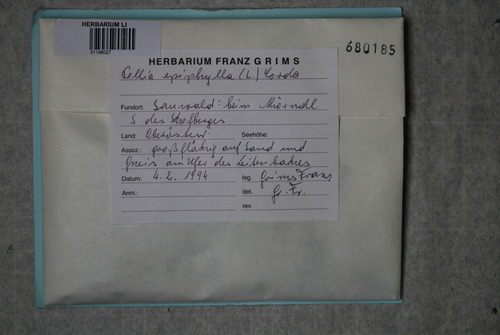 HERBARIUM LI
01198027
680185
HERBARIUM FRANZ GRIMS
Pellia epiphylla (L.) Corda
Fundort: Sauwald: beim
S des
Land: Oberösterr. Seehöhe:
Assoz.: großflächig auf Sand und
Gneis am Ufer des Leitenbaches
Datum: 4.2. 1994 leg. Grims Franz
Anm.: det. Gr. Fr.
rev.